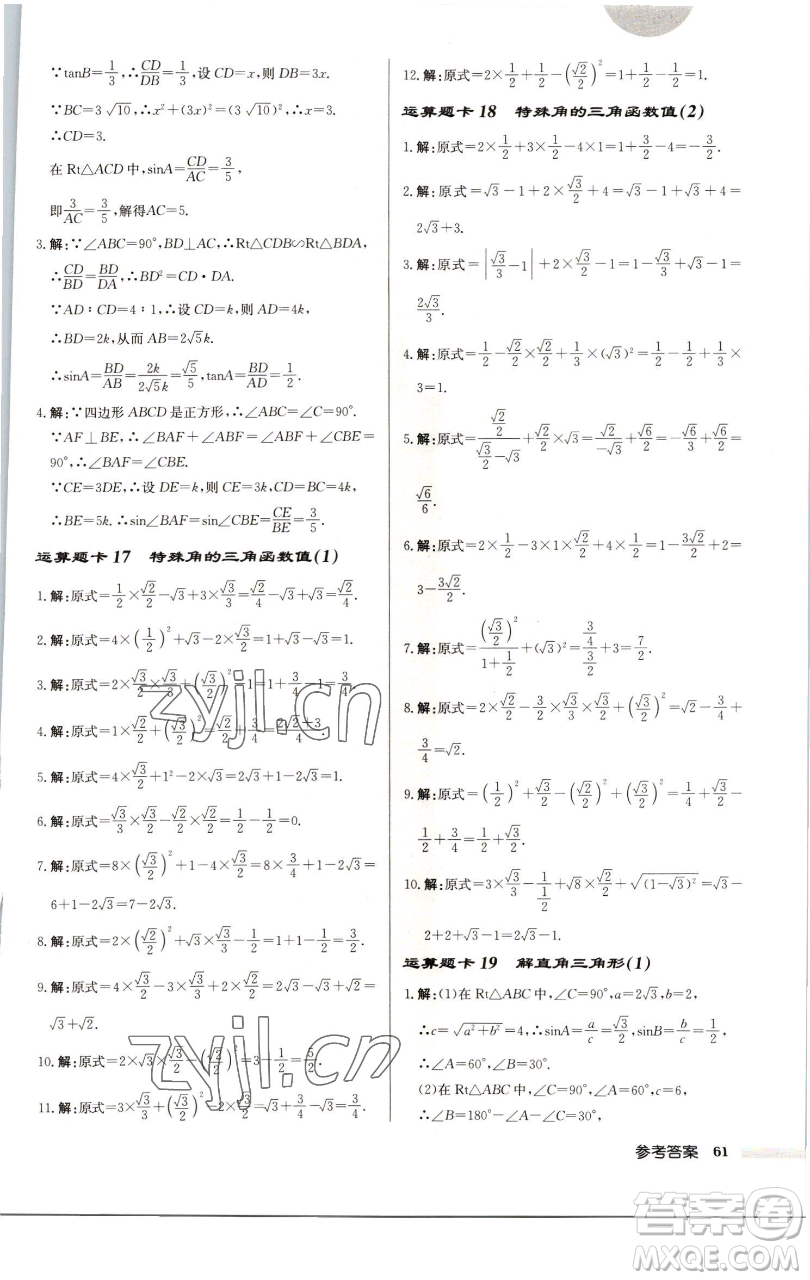 ∵tanB=1/3,∴CD/DB=1/3,设CD=x,则DB=3x.
∵BC=3√10,∴x²+(3x)²=(3√10)²,∴x=3.
∴CD=3.
在Rt△ACD中,sinA=CD/AC=3/5,
即3/AC=3/5,解得AC=5.
3.解:∵∠ABC=90°,BD⊥AC,∴Rt△CDB∽Rt△BDA,
∴CD/BD=BD/DA,∴BD²=CD·DA.
∵AD∶CD=4∶1,∴设CD=k,则AD=4k,
∴BD=2k,从而AB=2√5k,
∴sinA=BD/AB=2k/(2√5k)=√5/5,tanA=BD/AD=1/2.
4.解:∵四边形ABCD是正方形,∴∠ABC=∠C=90°.
∵AF⊥BE,∴∠BAF+∠ABF=∠ABF+∠CBE=
90°,∴∠BAF=∠CBE.
∵CE=3DE,∴设DE=k,则CE=3k,CD=BC=4k,
∴BE=5k.∴sin∠BAF=sin∠CBE=CE/BE=3/5.
运算题卡17 特殊角的三角函数值(1)
1.解:原式=1/2×√2/2-√3+3×√3/3=√2/4-√3+√3=√2/4.
2.解:原式=4×(1/2)²+√3-2×√3/2=1+√3-√3=1.
3.解:原式=2×√3/2×√3/3+(√3/2)²=1+3/4=1 3/4.
4.解:原式=1×√2/2+(√3/2)²=√2/2+3/4=(2√2+3)/4.
5.解:原式=4×√2/2+1²-2×√3/2=2√2+1-√3.
6.解:原式=√3/3×√3/2-√2/2×√2/2=1/2-1/2=0.
7.解:原式=8×(√3/2)²+1-4×√3/2=8×3/4+1-2√3=
6+1-2√3=7-2√3.
8.解:原式=2×(√2/2)²+√3×√3/3-1/2=1+1-1/2=3/2.
9.解:原式=4×√3/2-3×√3/3+2×√2/2=2√3-√3+√2=
√3+√2.
10.解:原式=2×√3×√3/2-(√2/2)²=3-1/2=5/2.
11.解:原式=3×√3/3+(√3/2)²-2×√3/2=√3+3/4-√3=3/4.
12.解:原式=2×1/2+1/2-(√2/2)²=1+1/2-1/2=1.
运算题卡18 特殊角的三角函数值(2)
1.解:原式=2×1/2+3×1/2-4×1=1+3/2-4=-3/2.
2.解:原式=√3-1+2×√3/2+4=√3-1+√3+4=
2√3+3.
3.解:原式=|√3/3-1|+2×√3/2-1=1-√3/3+√3-1=
2√3/3.
4.解:原式=1/2-√2/2×√2/2+1/3×(√3)²=1/2-1/2+1/3×
3=1.
5.解:原式=(√2/2)/(√3/2-√3)+√2/2×√3=√2/2/(-√3/2)+√6/2=-√6/3+√6/2=
√6/6.
6.解:原式=2×1/2-3×1×√2/2+4×(√2/2)²=1-3√2/2+2=
3-3√2/2.
7.解:原式=(√3/2)²/(1+1/2)+(√3)²=(3/4)/(3/2)+3=7/2.
8.解:原式=2×√2/2-3/2×√3/3×√3/2+(√3/2)²=√2-3/4+
3/4=√2.
9.解:原式=(1/2)²+√3/2-(√2/2)²+(√3/2)²=1/4+√3/2-
1/2+3/4=1/2+√3/2.
10.解:原式=3×√3/3-1/(1/2)+√8×√2/2+√(1-√3)²=√3-
2+2+√3-1=2√3-1.
运算题卡19 解直角三角形(1)
1.解:(1)在Rt△ABC中,∠C=90°,a=2√3,b=2,
∴c=√(a²+b²)=4,∴sinA=a/c=√3/2,sinB=b/c=1/2,
∴∠A=60°,∠B=30°.
(2)在Rt△ABC中,∠C=90°,∠A=60°,c=6,
∴∠B=180°-∠A-∠C=30°,
参考答案 61
zyjl.cn
zyjl.cn
答案圈
MXQE.COM